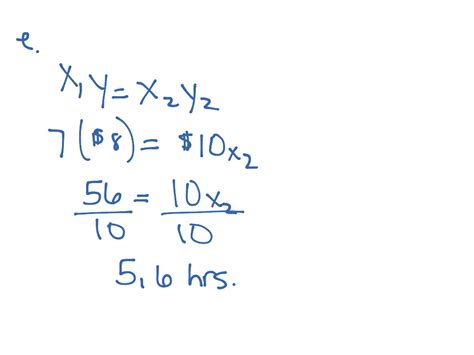 e.
X₁Y = X₂Y₂
7($8) = $10x₂
56/10 = 10x₂/10
5,6 hrs.